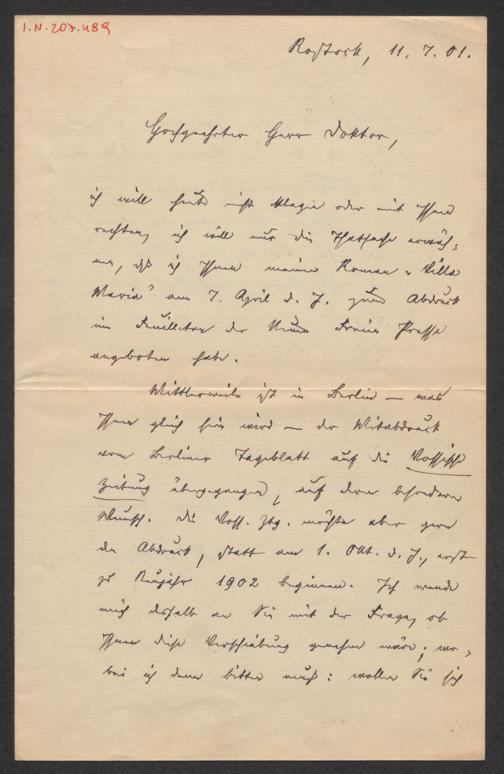 I.N. 207.489
Rostock, 11. 7. 01.
Hochgeehrter Herr Doktor,
ich will heute nicht klagen oder mit Ihnen
rechten, ich will nur die Thatsache erwäh-
nen, daß ich Ihnen meinen Roman „Villa
Maria" am 7. April d. J. zum Abdruck
im Feuilleton der Neuen Freien Presse
angeboten habe.
Mittlerweile ist in Berlin — was
Ihnen gleich sein wird — der Mitabdruck
vom Berliner Tageblatt auf die Vossische
Zeitung übergegangen, auf deren besondern
Wunsch. Die Voss. Ztg. möchte aber gern
den Abdruck, statt am 1. Okt. d. J., erst
zu Neujahr 1902 beginnen. Ich wende
mich deshalb an Sie mit der Frage, ob
Ihnen diese Verschiebung genehm wäre; wo-
bei ich denn bitten muß: wollen Sie sich